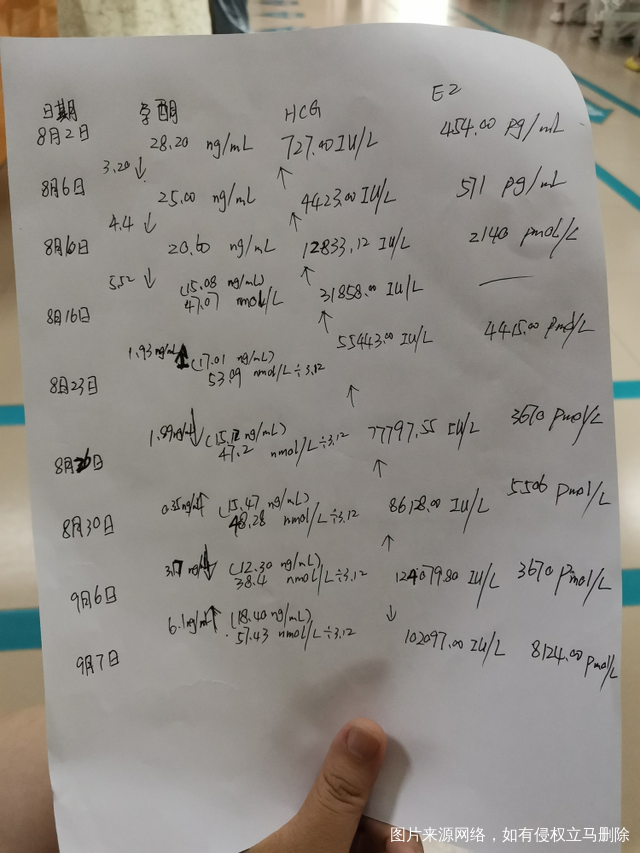 日期 孕酮 HCG E2
8月2日 28.20 ng/mL 727.00 IU/L 454.00 pg/mL
3.20 ↓ ↑
8月6日 25.00 ng/mL 4423.00 IU/L 571 pg/mL
4.4 ↓ ↑
20.60 ng/mL 12833.12 IU/L 2140 pmol/L
5.52 ↓ ↑
(15.08 ng/mL)
8月16日 47.07 nmol/L 31858.00 IU/L —
↑
1.93 ng/mL ↑ (17.01 ng/mL) 55443.00 IU/L 4415.00 pmol/L
8月23日 53.09 nmol/L÷3.12
↑
ng/mL ↓ ng/mL) 77797.55 IU/L 3670 pmol/L
47.2 nmol/L÷3.12
8月26日 ↑
0.35 ng/mL ↑ (15.47 ng/mL) 86128.00 IU/L 5506 pmol/L
8月30日 48.28 nmol/L÷3.12
↑
ng/mL ↓ (12.30 ng/mL) 124079.80 IU/L 3670 pmol/L
9月6日 38.4 nmol/L÷3.12
6.1 ng/mL ↑ (18.40 ng/mL) ↓
57.43 nmol/L÷3.12 102097.00 IU/L 8124.00 pmol/L
9月7日
图片来源网络，如有侵权立马删除